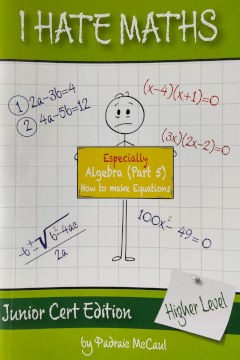 I HATE MATHS
① 2a-3b=4
② 4a-5b=12
(x-4)(x+1)=0
(3x)(2x-2)=0
Especially
Algebra (Part 5)
How to make Equations
100x²-49=0
-b±√b²-4ac
2a
Higher Level
Junior Cert Edition
by Padraic McCaul